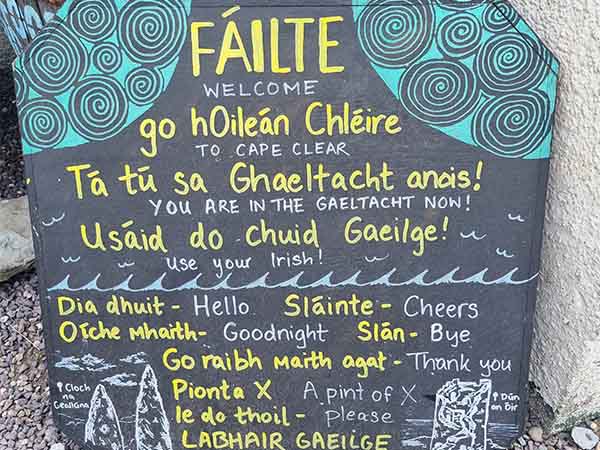 FÁILTE
WELCOME
go hOileán Chléire
TO CAPE CLEAR
Tá tú sa Ghaeltacht anois!
YOU ARE IN THE GAELTACHT NOW!
Usáid do chuid Gaeilge!
Use your Irish!
Dia dhuit - Hello Sláinte - Cheers
Oíche mhaith - Goodnight Slán - Bye
Go raibh marth agat - Thank you
Pionta X A pint of X
le do thoil - please
LABHAIR GAEILGE
Cloch na
Geallúna
Dún
an Óir